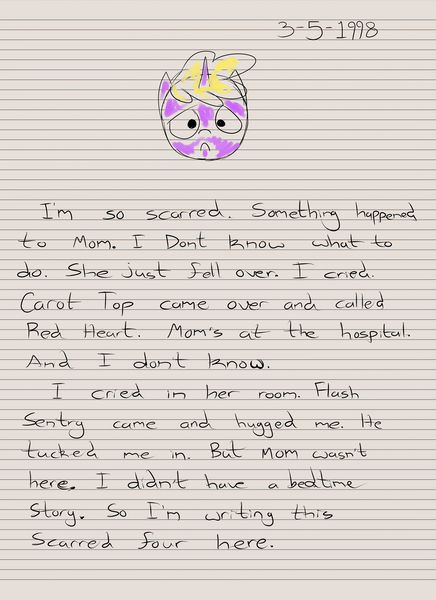 3-5-1998
I'm so scarred. Something happened
to Mom. I Dont know what to
do. She just fell over. I cried.
Carot Top came over and called
Red Heart. Mom's at the hospital.
And I dont know.
I cried in her room. Flash
Sentry came and hugged me. He
tucked me in. But Mom wasn't
here. I didn't have a bedtime
Story. So I'm writing this
Scarred four here.